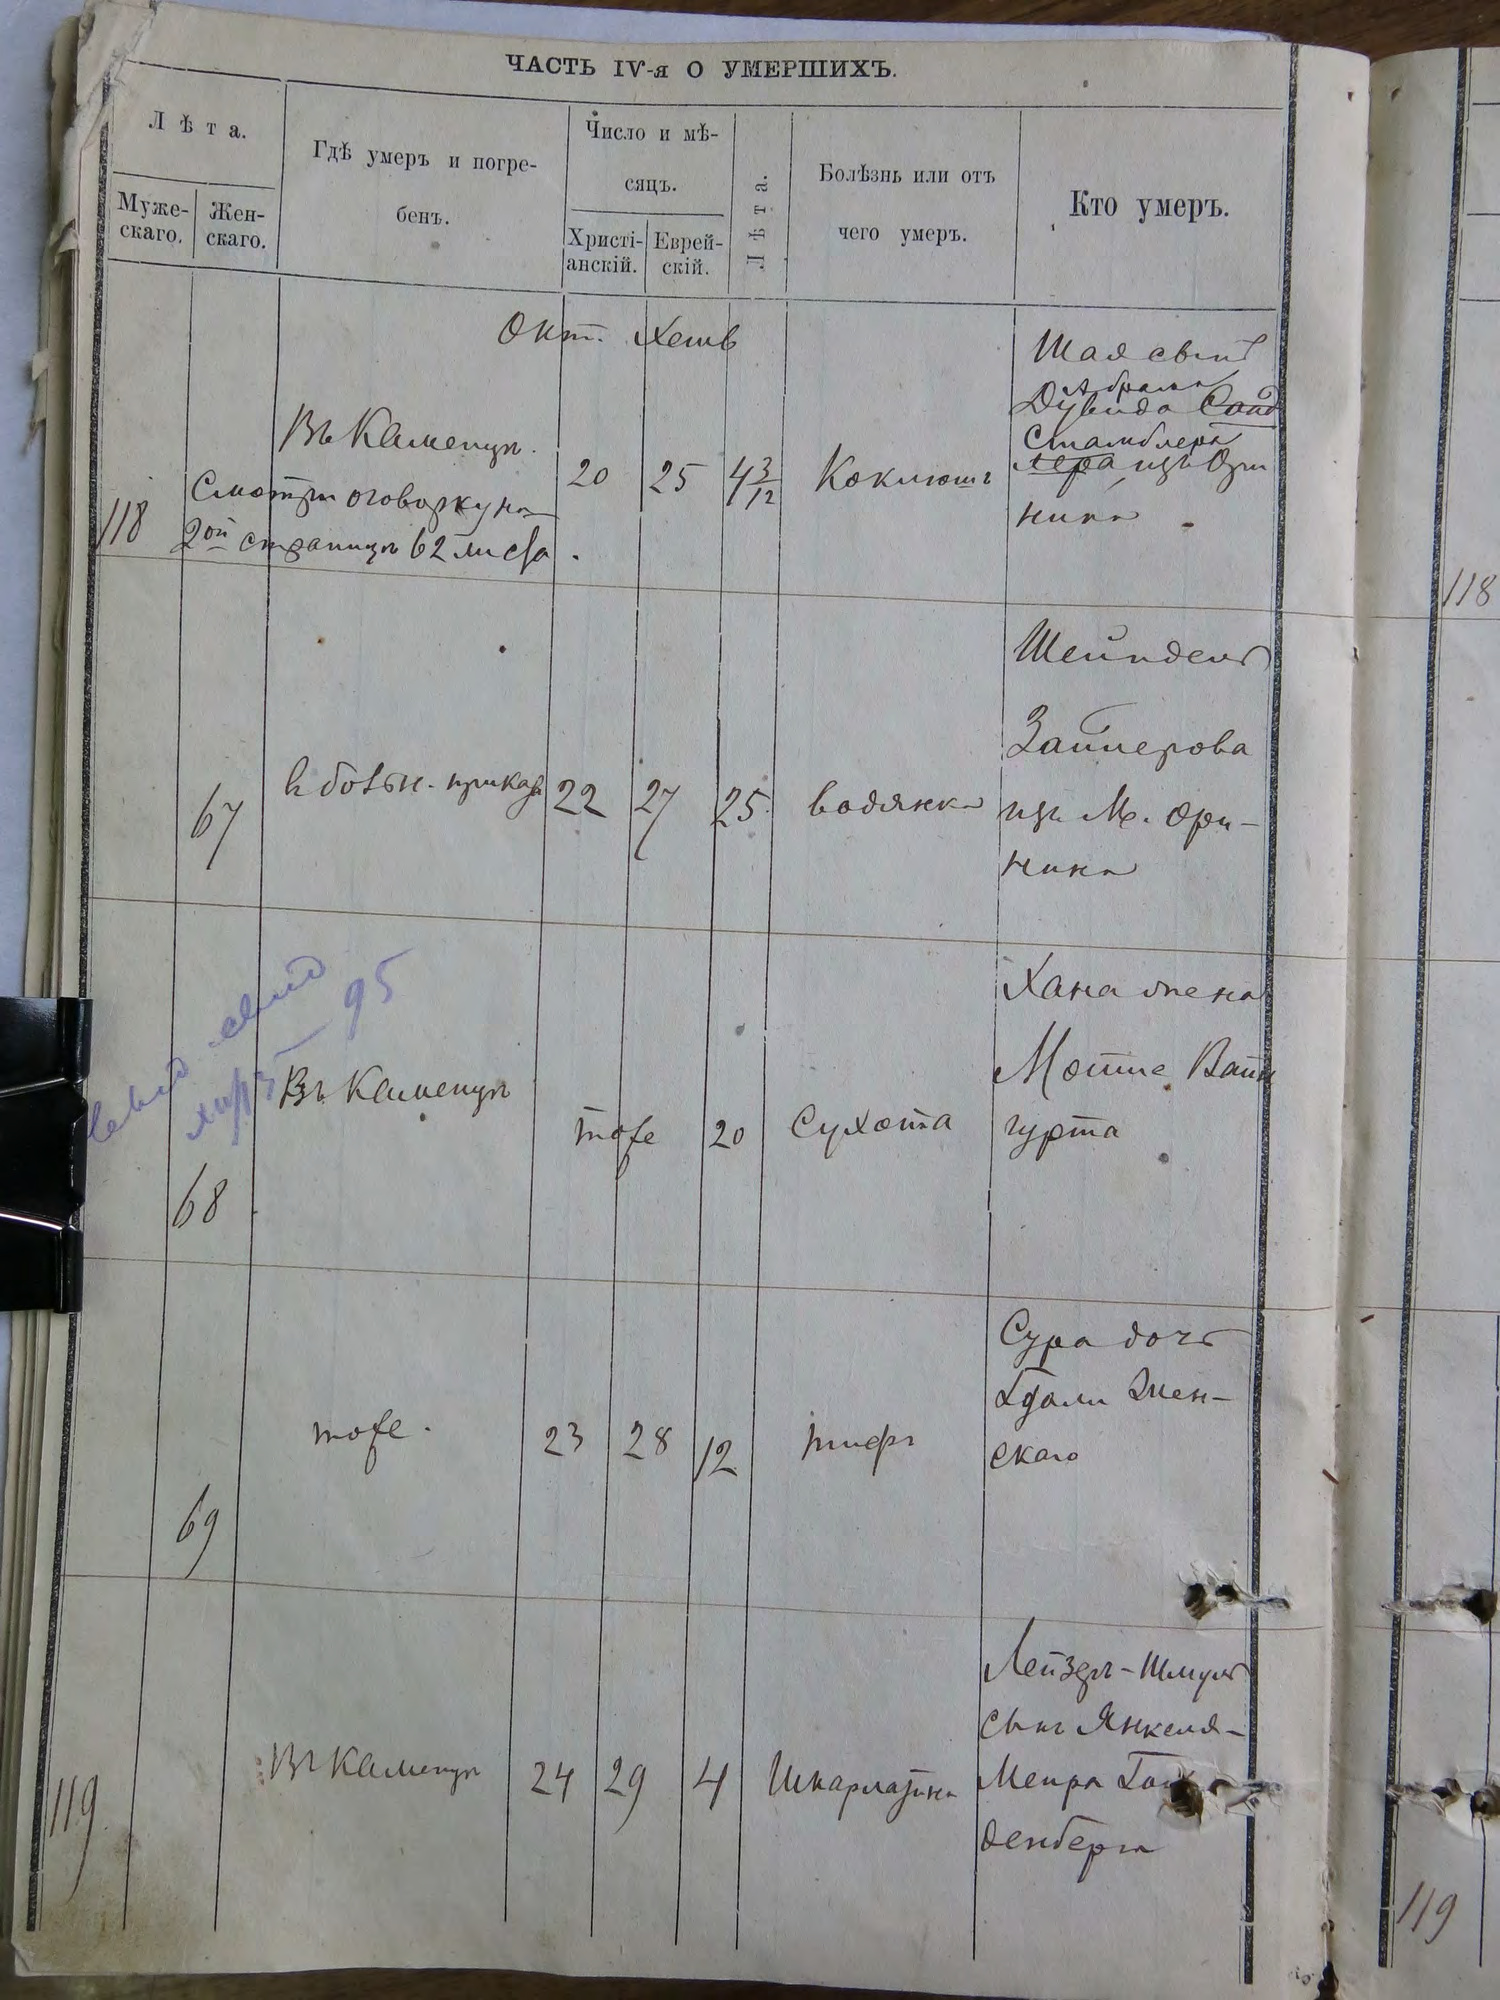 ЧАСТЬ IV-я О УМЕРШИХЪ.
Лѣта.
Муже-
скаго.
Жен-
скаго.
Гдѣ умеръ и погре-
бенъ.
Число и мѣ-
сяцъ.
Христі-
анскій.
Еврей-
скій.
Лѣта.
Болѣзнь или отъ
чего умеръ.
Кто умеръ.
Окт. Хешв
118
Въ Каменцѣ.
Смотри оговорку на
2ой страницѣ 62 листа.
20
25
4 3/12
Коклюшъ
Шая сынъ
Абрама
Дувида
Стамблера
лера изъ Ори
нина
118
67
в больн. приказ
22
27
25
водянка
Шейндель
Зайлерова
изъ М. Ори-
нина
95
68
Въ Каменцѣ
тоже
20
Сухота
Хана жена
Мотте Вайн
гурта
69
тоже.
23
28
12
тифъ
Сура дочь
Гдали
скаго
119
Въ Каменцѣ
24
29
4
Шкарлатина
Лейзеръ-Шмуль
сынъ Янкеля-
Меира
денберга
119